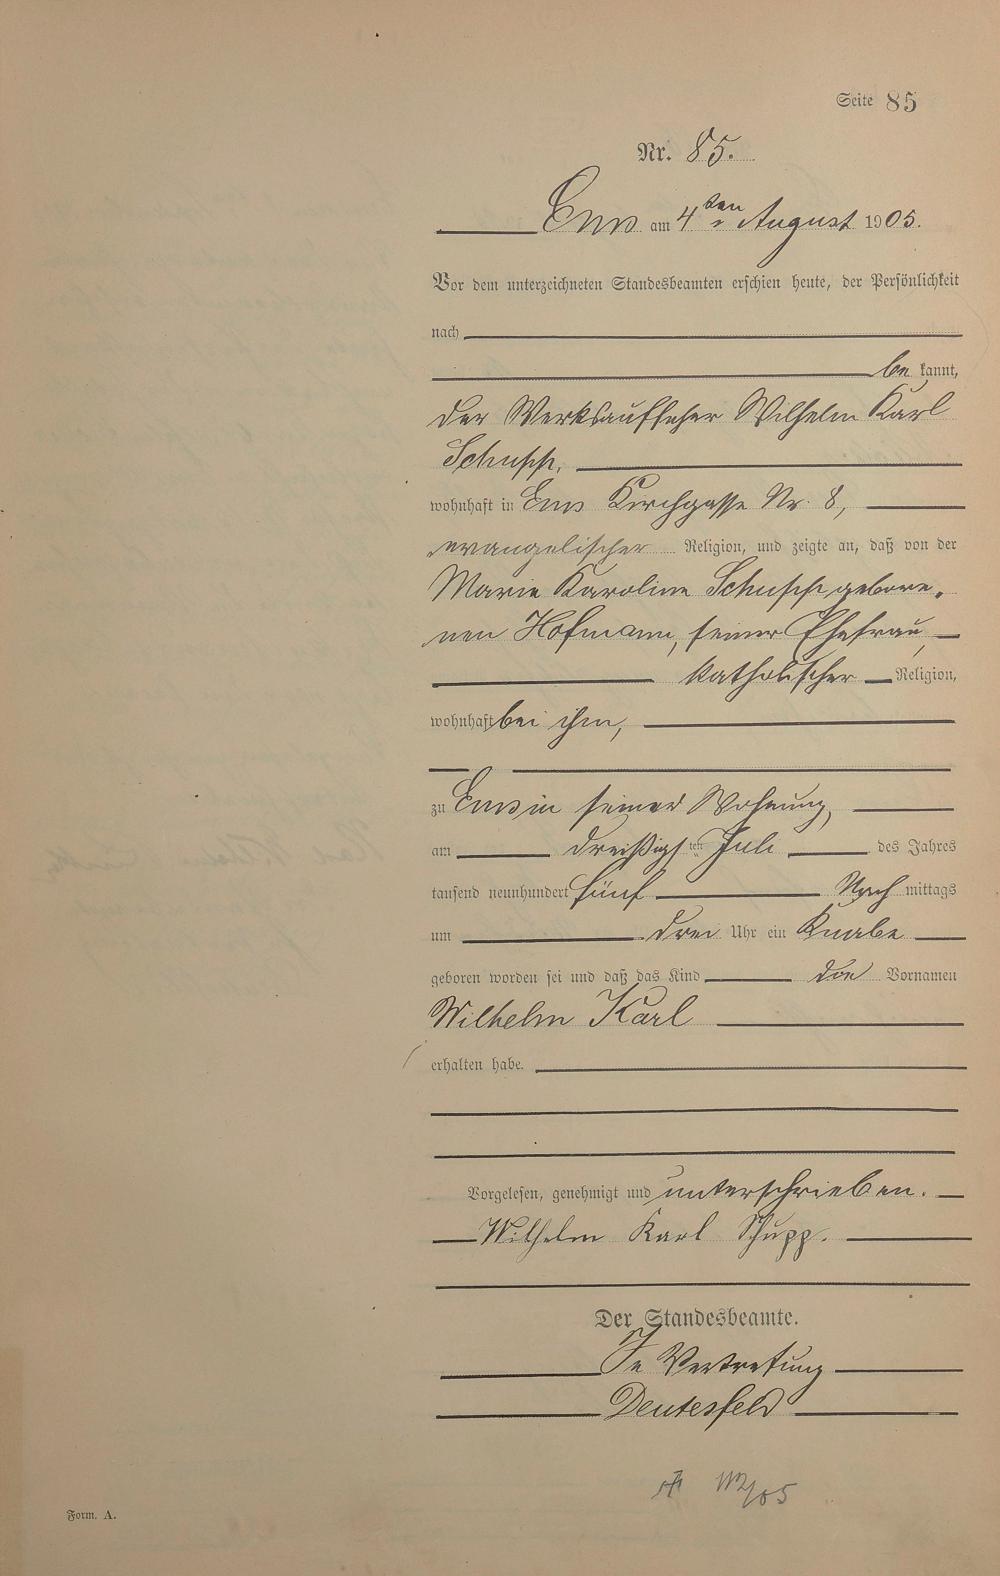 Seite 85
Nr. 85.
Ems am 4ten August 1905.
Vor dem unterzeichneten Standesbeamten erschien heute, der Persönlichkeit
nach
be kannt,
der Werksaufseher Wilhelm Karl
Schupp,
wohnhaft in Ems Kirchgasse Nr. 8,
evangelischer Religion, und zeigte an, daß von der
Marie Karoline Schupp gebore„
nen Hofmann, seiner Ehefrau,
katholischer Religion,
wohnhaft bei ihm,
zu Ems in seiner Wohnung,
am dreißigsten Juli des Jahres
tausend neunhundert fünf Nach mittags
um drei Uhr ein Knabe
geboren worden sei und daß das Kind die Vornamen
Wilhelm Karl
erhalten habe.
Vorgelesen, genehmigt und unterschrieben.
Wilhelm Karl Schupp.
Der Standesbeamte.
In Vertretung
Deutesfeld
Form. A.